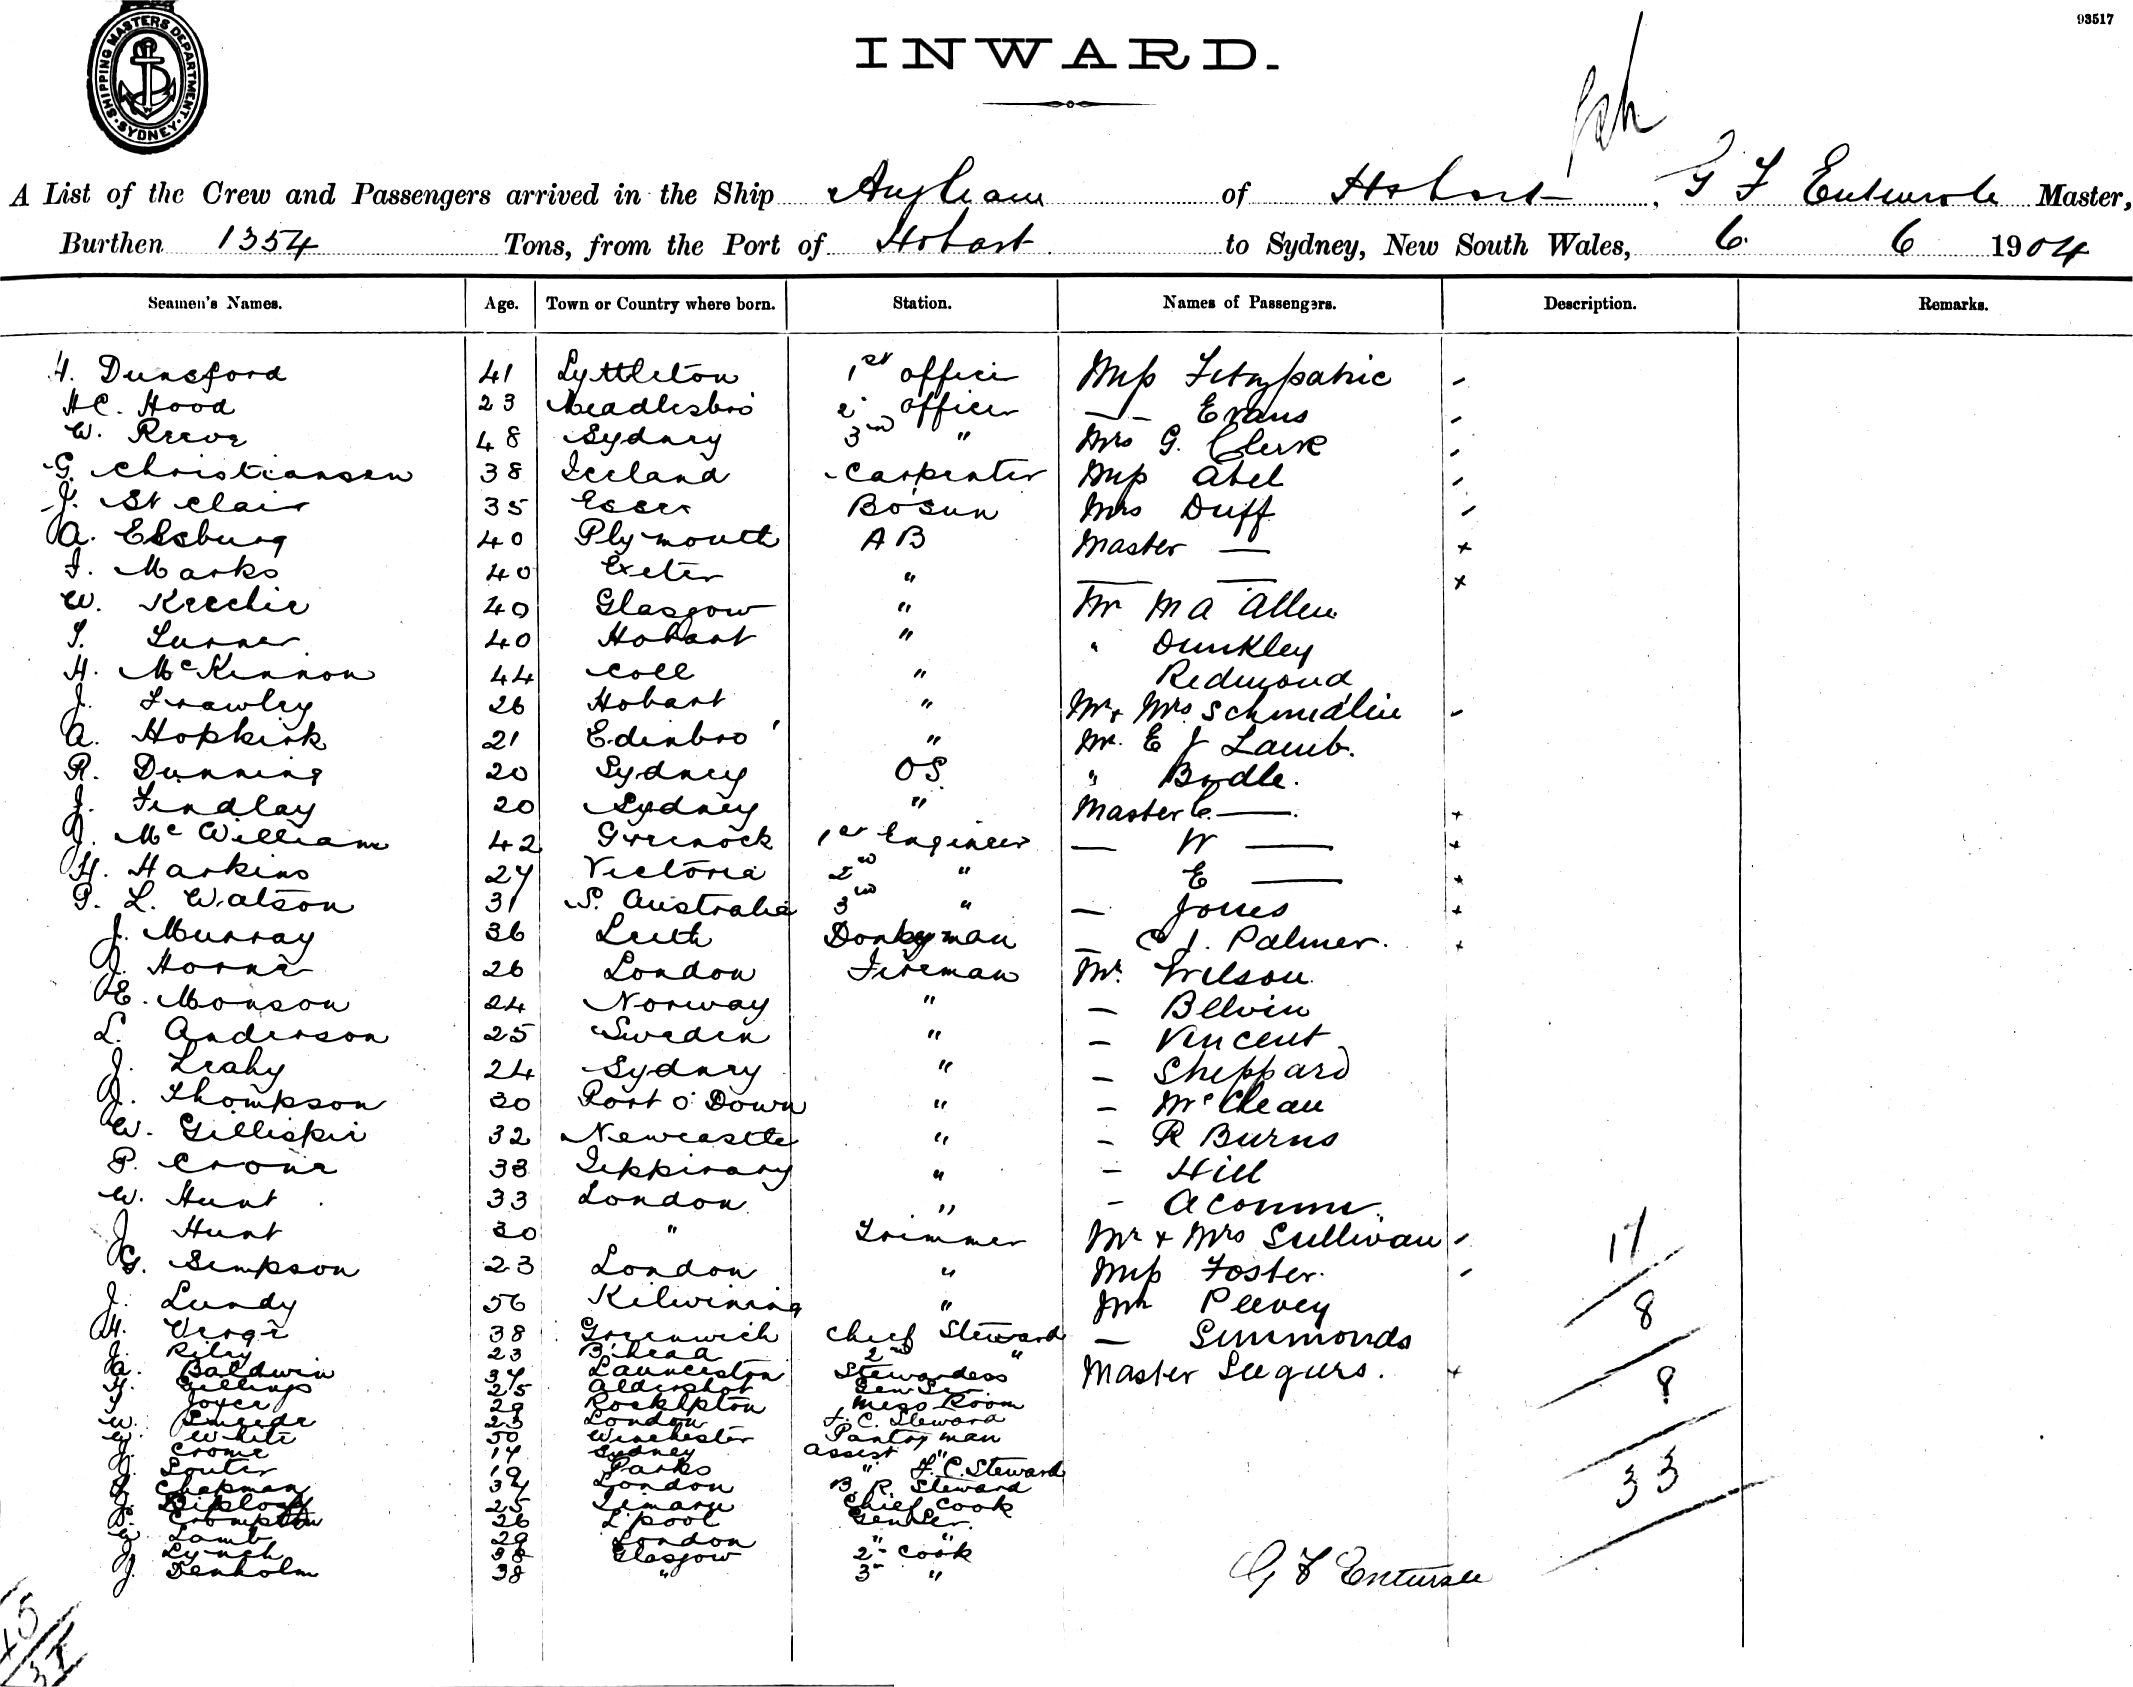 93517
SHIPPING MASTERS DEPARTMENT. SYDNEY.
INWARD.
A List of the Crew and Passengers arrived in the Ship Anglian of Hobart, G F Master,
Burthen 1354 Tons, from the Port of Hobart to Sydney, New South Wales, 6 6 1904
Seamen's Names. Age. Town or Country where born. Station. Names of Passengers. Description. Remarks.
H. Dunsford 41 Lyttleton 1st officer Miss Fitzpatric
HC. Hood 23 Meadlesbro 2 officer — Evans
W. Reeve 48 Sydney 3rd " Mrs G. Clerk
G. Christiansen 38 Iceland Carpenter Miss Abel
J. St Clair 35 Essex Bosun Mrs Duff
A. Elsburg 40 Plymouth AB Master —
J. Marks 40 Exeter " — —
W. Keechie 40 Glasgow " Mr M A Allen
T. Turner 40 Hobart " " Dunkley
H. McKinnon 44 Coll " Redmond
J. Frawley 26 Hobart " Mr & Mrs Schmidlin
A. Hopkirk 21 Edinbro' " Mr. E J Lamb.
R. Dunning 20 Sydney OS " Bodle.
J. Findlay 20 Sydney " Master C. —
J. McWilliam 42 Greenock 1st Engineer — W —
H. Harkins 27 Victoria 2nd " E —
P. L. Watson 31 S. Australia 3rd " — Jones
J. Murray 36 Leith Donkeyman — C J. Palmer.
J. Horne 26 London Fireman Mr. Wilson
E. Monson 24 Norway " — Belvin
L. Anderson 25 Sweden " — Vincent
J. Leahy 24 Sydney " — Sheppard
J. Thompson 30 Port o' Down " — McClean
W. Gilliskir 32 Newcastle " — R Burns
P. Crone 38 Tippirary " — Hill
W. Hunt 33 London " —
J Hunt 30 " Trimmer Mr & Mrs Sullivan 17
G. Simpson 23 London " Miss Foster.
J. Lundy 56 Kilwining " Mr Peevey 8
H. Verge 38 Greenwich Chief Steward — Simmonds
J. Riley 23 B'head 2nd " Master Seegurs. 8
A. Baldwin 37 Launceston Stewardess
H. Gillings 25 Aldershot Gen Ser
J Joyce 29 Rocklpton Mess Room
W. 23 London F. C. Steward
W. White 50 Winchester Pantryman
J. Crome 17 Sydney Assist "
J. Souter 19 Parks " F. C. Steward 33
J. Chapman 37 London B. R. Steward
J. 25 Timaru Chief Cook
S. Crompton 26 L'pool Gen Ser.
W. Lamb 29 London " "
J Lynch 38 Glasgow 2nd Cook
J. Denholm 38 " 3rd "
G F
45